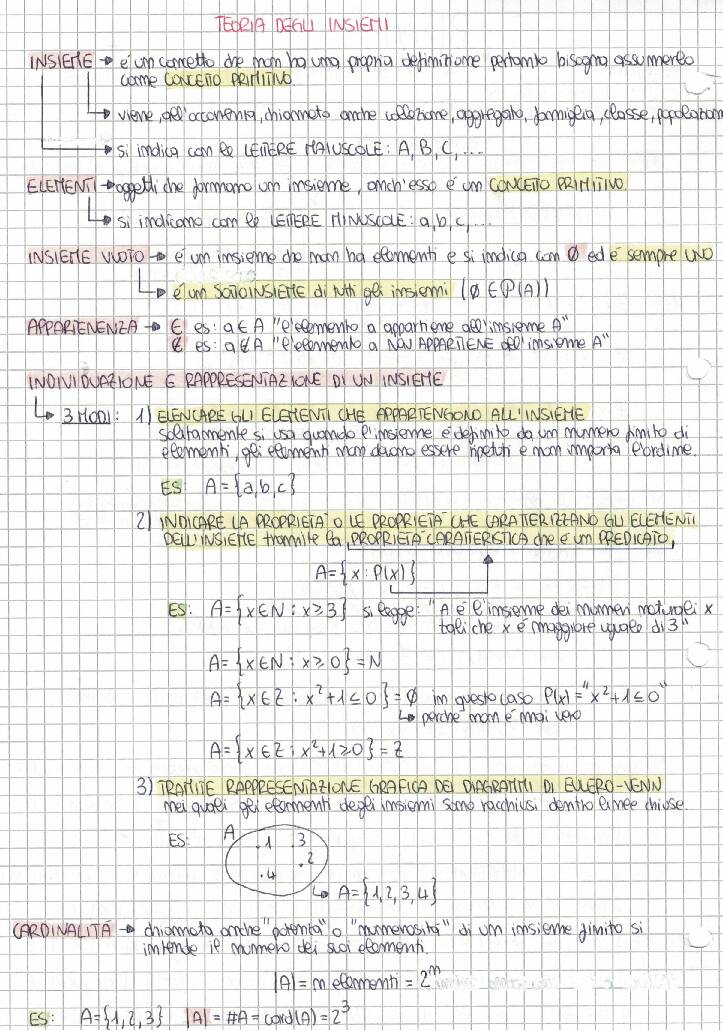 TEORIA DEGLI INSIEMI
INSIEME → è un concetto che non ha una propria definizione pertanto bisogna assumerlo
come CONCETTO PRIMITIVO.
→ viene, all'occorrenza, chiamato anche collezione, aggregato, famiglia, classe, popolazion
→ si indica con le LETTERE MAIUSCOLE: A, B, C, ...
ELEMENTI → oggetti che formano un insieme, anch'esso è un CONCETTO PRIMITIVO.
→ si indicano con le LETTERE MINUSCOLE: a, b, c, ...
INSIEME VUOTO → è un insieme che non ha elementi e si indica con ∅ ed è sempre UNO
→ è un SOTTOINSIEME di tutti gli insiemi (∅ ∈ P(A))
APPARTENENZA → ∈ es: a ∈ A "l'elemento a appartiene all'insieme A"
∉ es: a ∉ A "l'elemento a NON APPARTIENE all'insieme A"
INDIVIDUAZIONE E RAPPRESENTAZIONE DI UN INSIEME
→ 3 MODI: 1) ELENCARE GLI ELEMENTI CHE APPARTENGONO ALL'INSIEME
solitamente si usa quando l'insieme è definito da un numero finito di
elementi, gli elementi non devono essere ripetuti e non importa l'ordine.
ES: A = {a, b, c}
2) INDICARE LA PROPRIETÀ O LE PROPRIETÀ CHE CARATTERIZZANO GLI ELEMENTI
DELL'INSIEME tramite la PROPRIETÀ CARATTERISTICA che è un PREDICATO,
A = {x : P(x)}
ES: A = {x ∈ N : x ≥ 3} si legge: "A è l'insieme dei numeri naturali x
tali che x è maggiore uguale di 3"
A = {x ∈ N : x ≥ 0} = N
A = {x ∈ Z : x² + 1 ≤ 0} = ∅ in questo caso P(x) = "x² + 1 ≤ 0"
→ perché non è mai vero
A = {x ∈ Z : x² + 1 ≥ 0} = Z
3) TRAMITE RAPPRESENTAZIONE GRAFICA DEI DIAGRAMMI DI EULERO-VENN
nei quali gli elementi degli insiemi sono racchiusi dentro linee chiuse.
ES: A .1 .3
.2
.4
→ A = {1, 2, 3, 4}
CARDINALITÀ → chiamata anche "potenza" o "numerosità" di un insieme finito si
intende il numero dei suoi elementi.
|A| = n elementi = 2ⁿ
ES: A = {1, 2, 3} |A| = #A = card(A) = 2³